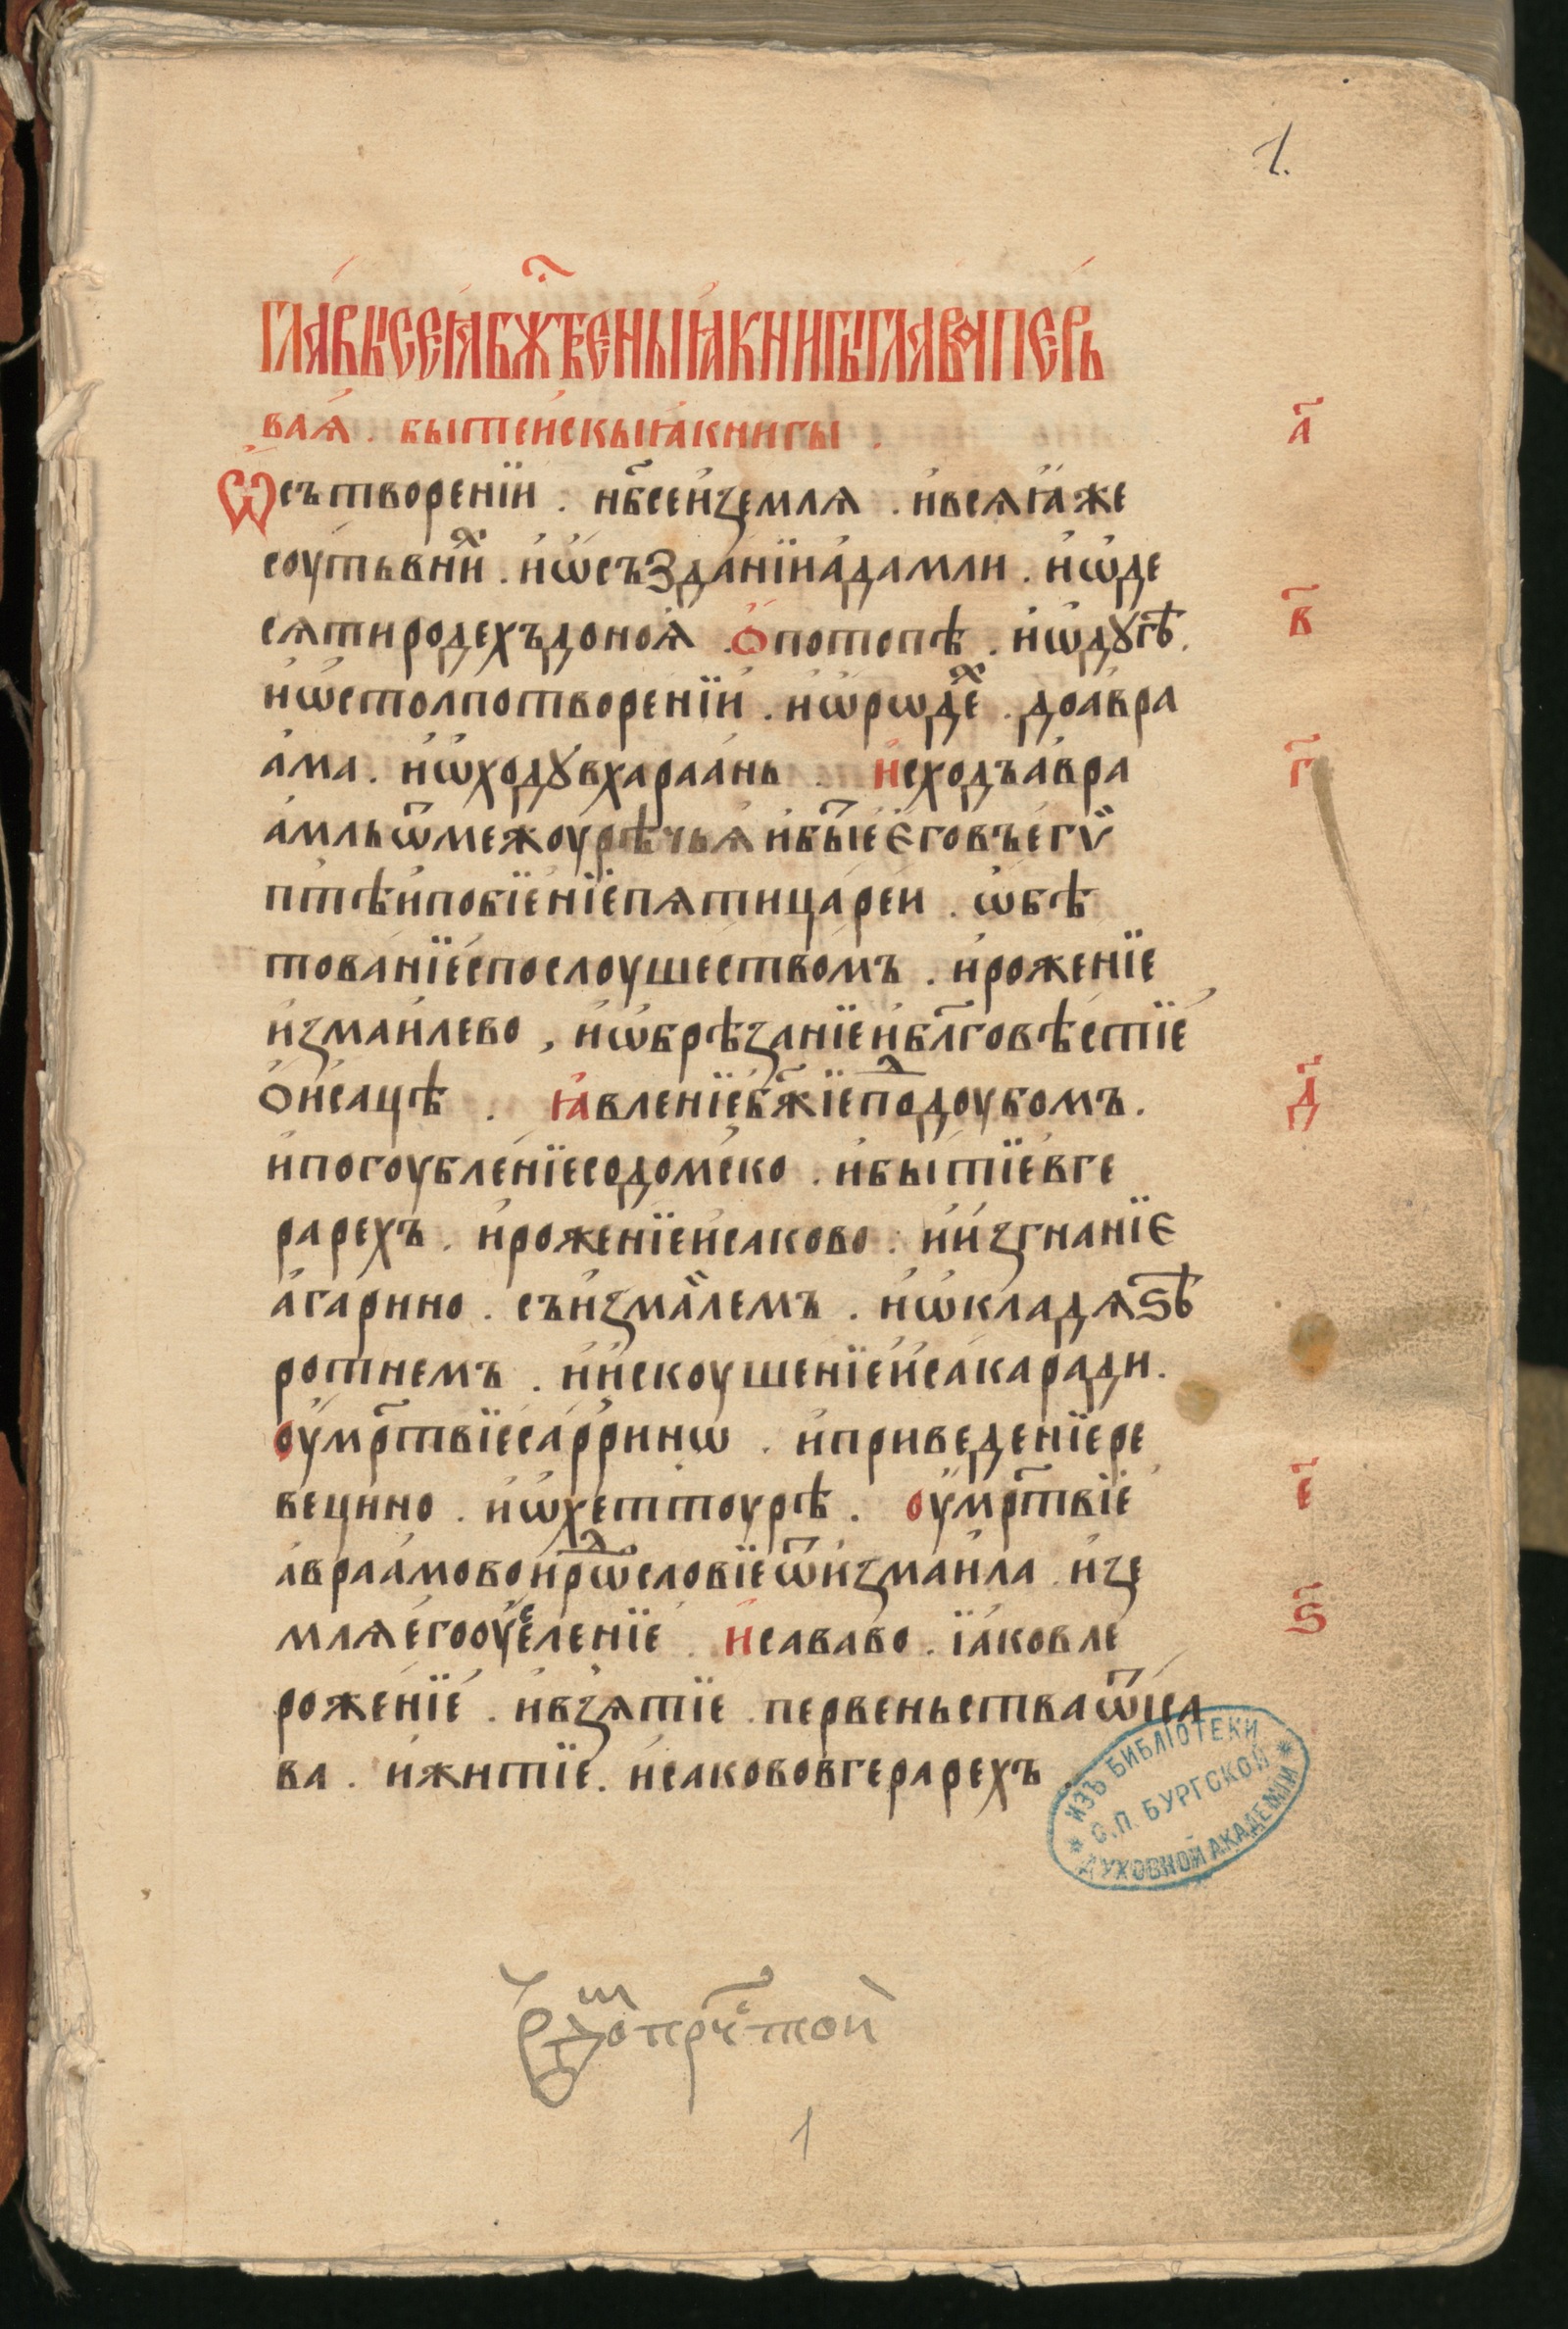 1.
ГЛАВЫ СЕꙖ БЖ҃ТВЕНЫꙖ КНИГЫ ГЛАВА ПЕРЬ
ваѧ . бытеискыꙗ книгы . а҃
Ѿ сътворенїи . нб҃се и землѧ . и всѧ ꙗже
соуть в ни́ⷯ . и ѡ създанїи адамли . и ѡ де
сѧти родехъ до ноѧ . о потопѣ . и ѡ дꙋгѣ . в҃
и ѡ столпотворенїи . и ѡ рѡдеⷯ . до авра
ама . и ѡ ходꙋ в хараань . исходъ авра г҃
амль ѿ межоурѣчьѧ и бы҃їе єго въ егѵ
птѣ и побїенїе пѧти цареи . ѡбѣ
тованїе с послоушеством̾ъ . и роженїе
измаилево , и ѡбрѣзанїе и бл҃говѣстїе
о исацѣ . ꙗвленїе бж҃їе поⷣ доубомъ . д҃
и погоубленїе содомско . и бытїе в ге
рарехъ . и роженїе исаково . и изгнанїє
агарино . съ измаилемъ . и ѡ кладѧѕѣ
ротнемъ . и искоушенїе исака ради .
оумр҃твїе сарринѡ . и приведенїе ре
вецино . и ѡ хеттоурѣ . оумр҃твїе е҃
авраамово и рѡⷣсловїе ѿ измаила . и зе
млѧ его оуⷭеленїе . исавово . їаковле ѕ҃
роженїе . и взѧтїе . первеньства ѿ іса
ва . и житїе . исаково в герарехъ
ИЗЪ БИБЛІОТЕКИ
С.П. БУРГСКОЙ
ДУХОВНОЙ АКАДЕМІИ
прⷭ҇чтои
1